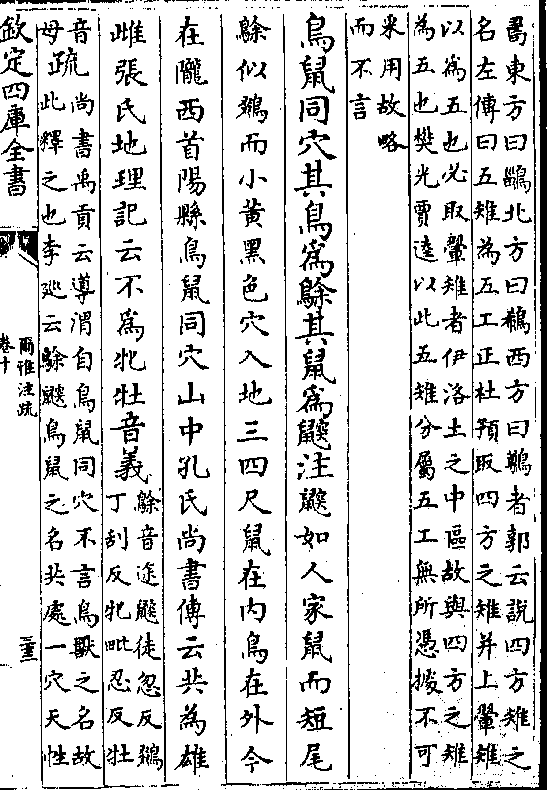 𠷎東方曰鶅北方曰鵗西方曰鷷者郭云說四方雉之
名左傳曰五雉為五工正杜預取四方之雉并上翬雉
以為五也必取翬雉者伊洛土之中區故與四方之雉
為五也樊光賈逵以此五雉分屬五工無所憑據不可
采用故略
而不言
鳥鼠同穴其鳥為鵌其鼠為鼵注鼵如人家鼠而短尾
鵌似鵽而小黃黑色穴入地三四尺鼠在內鳥在外今
在隴西首陽縣鳥鼠同穴山中孔氏尚書傳云共為雄
雌張氏地理記云不為牝牡音義
鵌音途鼵徒忽反鵽
丁刮反牝毗忍反牡
音
母
疏
尚書禹貢云導渭自鳥鼠同穴不言鳥獸之名故
此釋之也李廵云鵌鼵鳥鼠之名共處一穴天性
欽定四庫全書
爾雅注疏
卷十
三